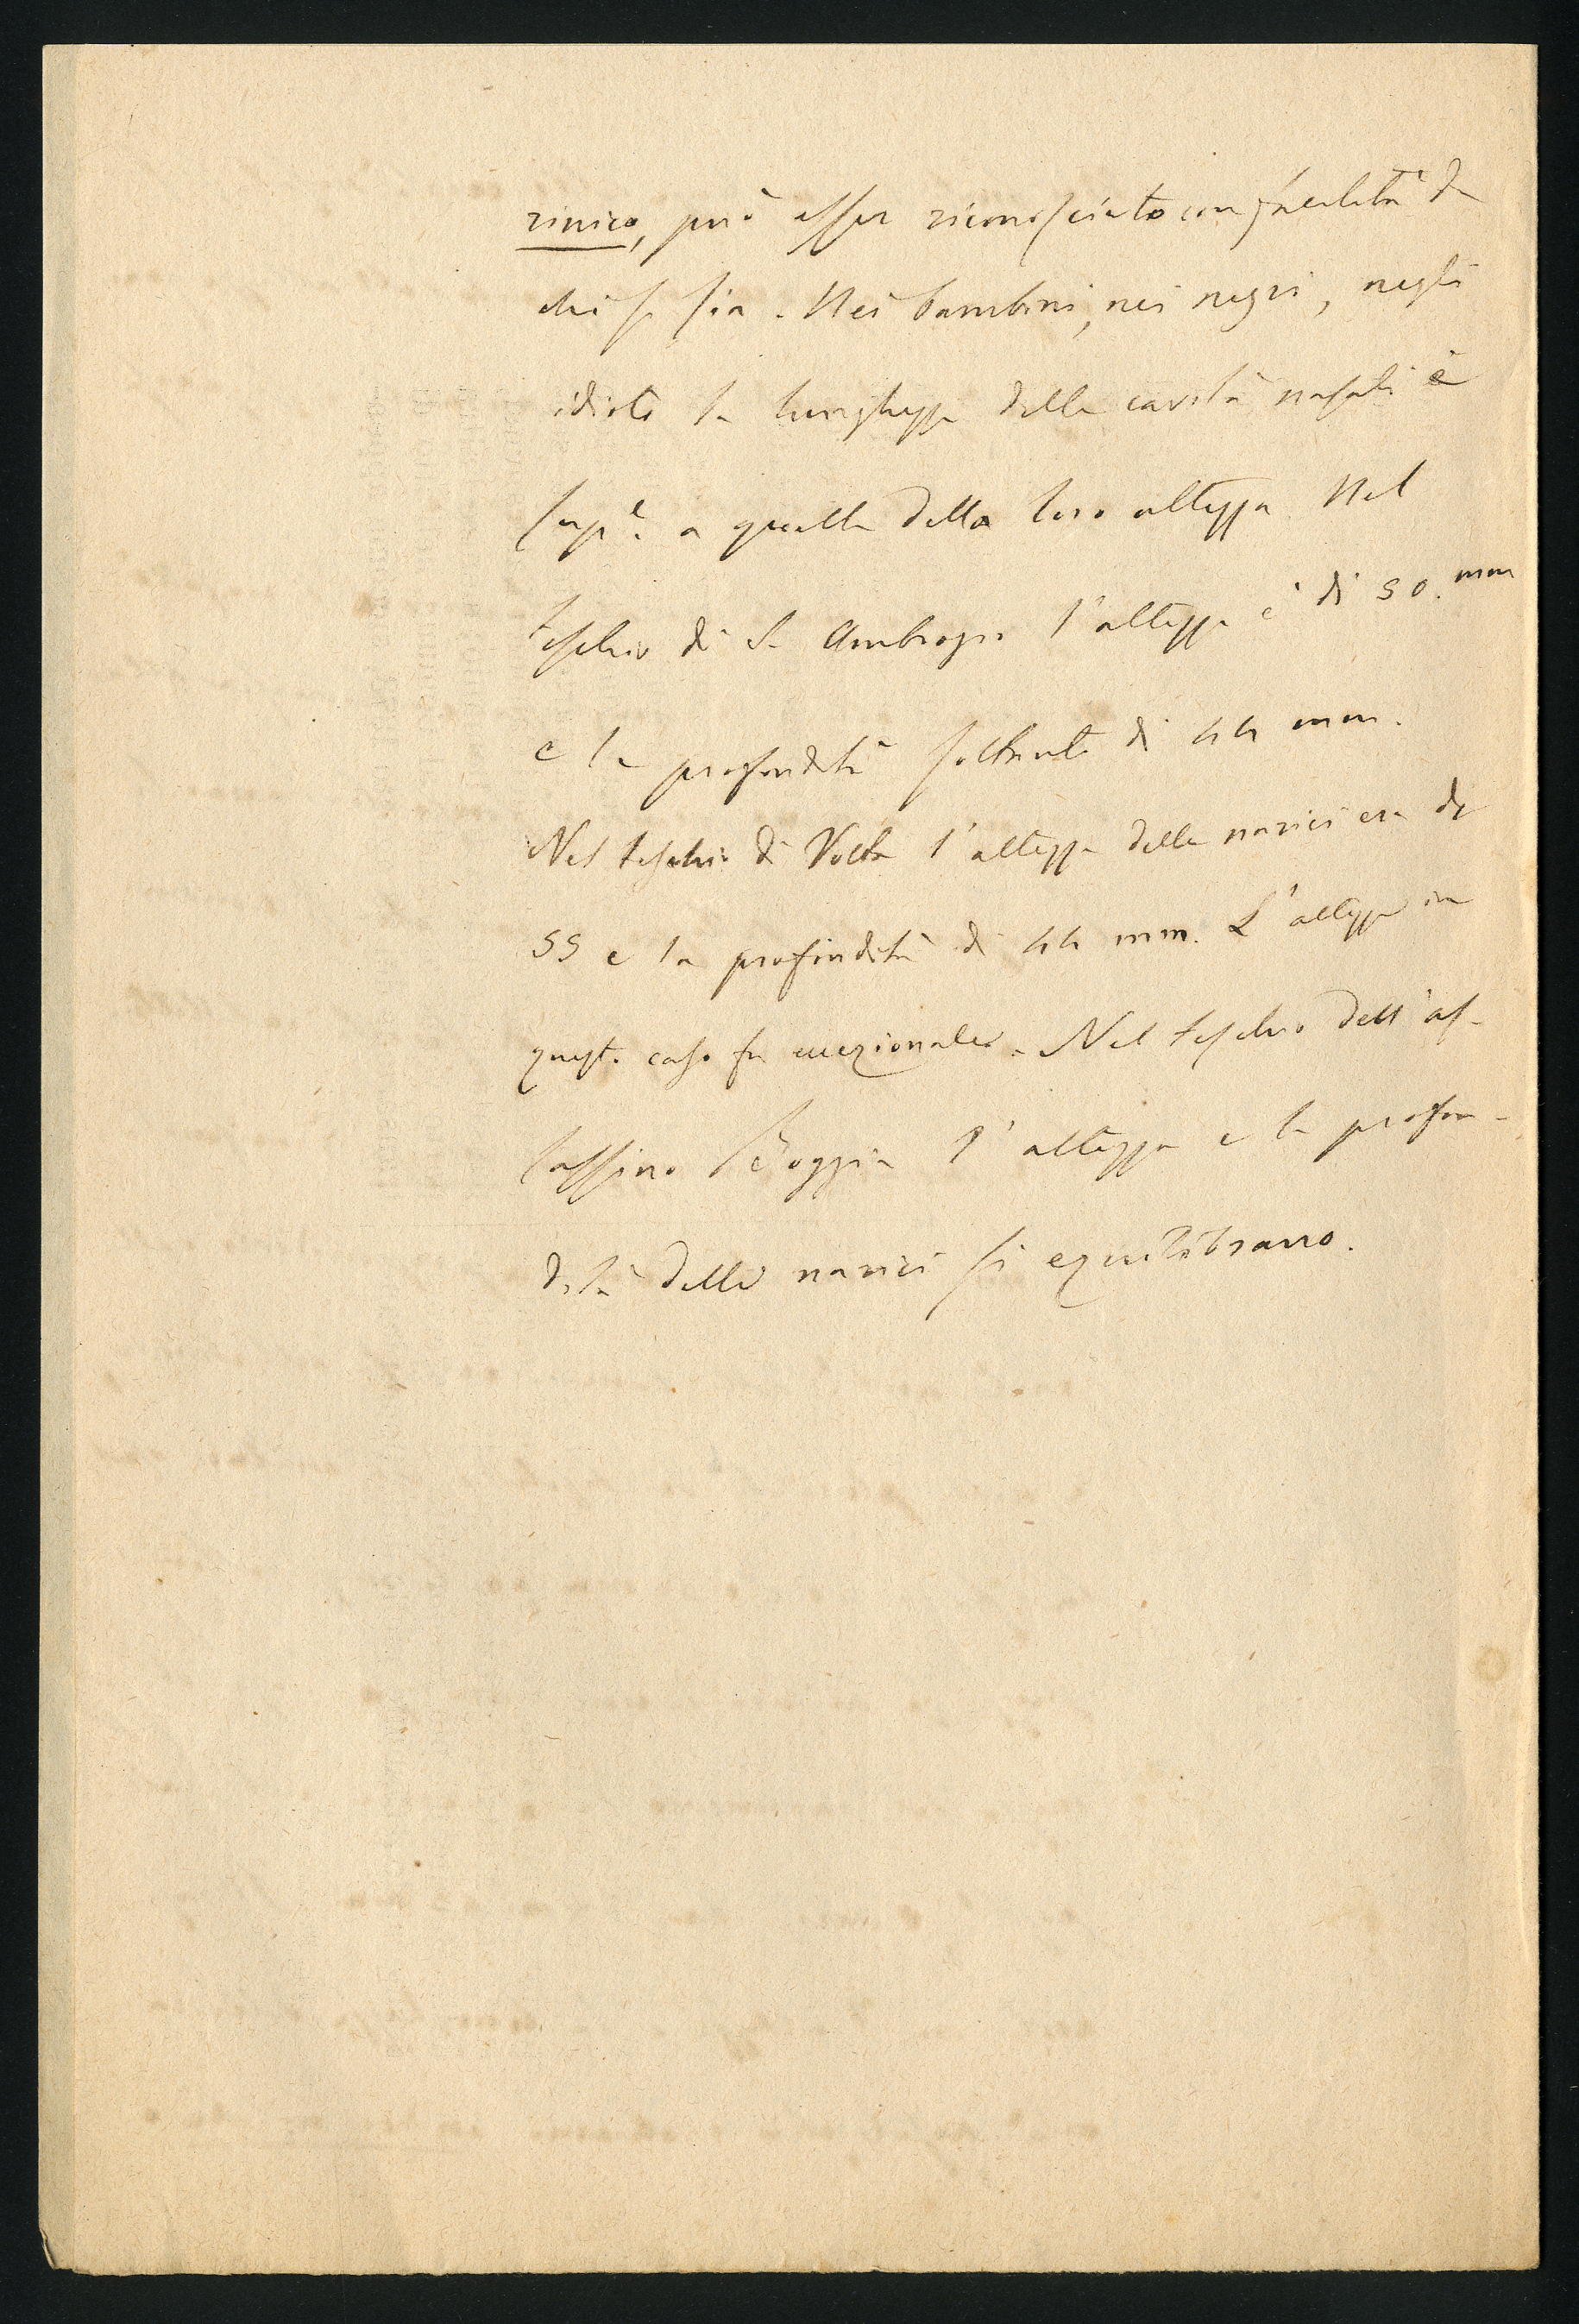 rinico, può esser riconosciuto con facilità da
chi si sia. Nei bambini, nei negri, negli
idioti la lunghezza delle cavità nasali è
sup.e a quella della loro altezza Nel
teschio di S. Ambrogio l'altezza è di 50. mm
e la profondità soltanto di 44 mm.
Nel teschio di Volta l'altezza delle narici era di
55 e la profondità di 44 mm. L'altezza in
questo caso fu eccezionale. Nel teschio dell'as-
sassino Boggia l'altezza e la profon-
dità delle narici si equilibrano.